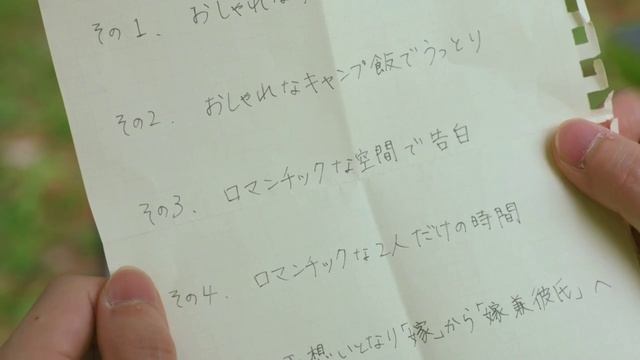 その1. おしゃれな
その2. おしゃれなキャンプ飯でうっとり
その3. ロマンチックな空間で告白
その4. ロマンチックな2人だけの時間
想いとなり「嫁」から「嫁兼彼氏」へ